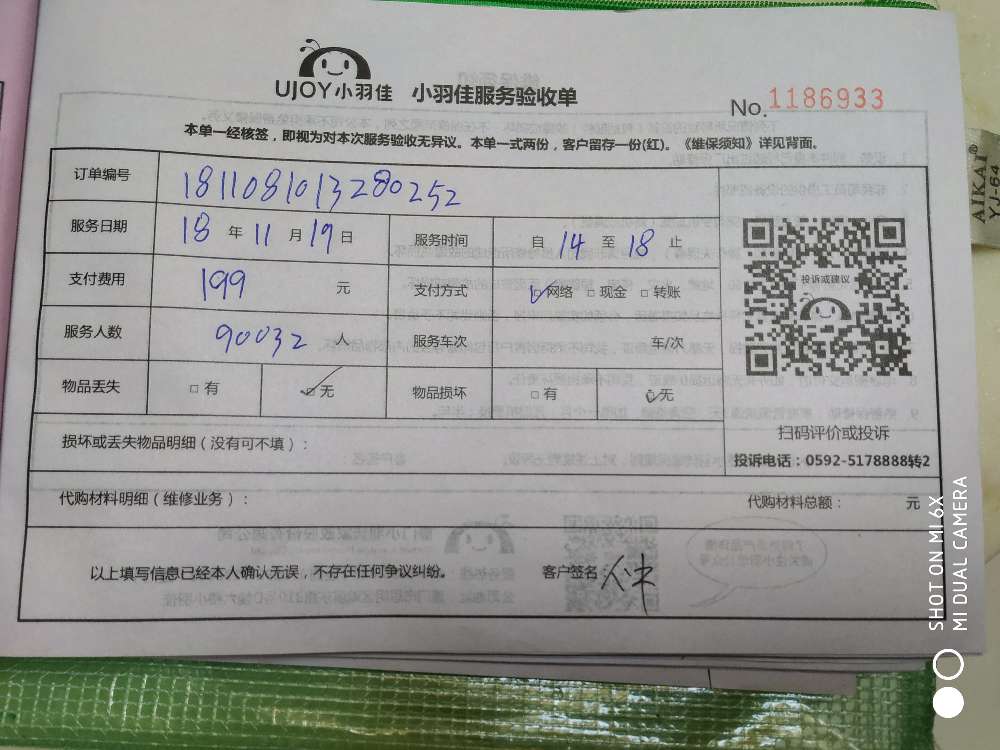 UJOY小羽佳 小羽佳服务验收单
No.1186933
本单一经核签，即视为对本次服务验收无异议。本单一式两份，客户留存一份(红)。《维保须知》详见背面。
订单编号 1811081013280252
服务日期 18 年 11 月 19 日 服务时间 自 14 至 18 止
支付费用 199 元 支付方式 ☑网络 □现金 □转账
服务人数 90032 人 服务车次 车/次
物品丢失 □有 ☑无 物品损坏 □有 ☑无
损坏或丢失物品明细（没有可不填）：
投诉或建议
扫码评价或投诉
投诉电话：0592-5178888转2
代购材料明细（维修业务）： 代购材料总额： 元
以上填写信息已经本人确认无误，不存在任何争议纠纷。 客户签名
AIKAI®
YJ-64
SHOT ON MI 6X
MI DUAL CAMERA